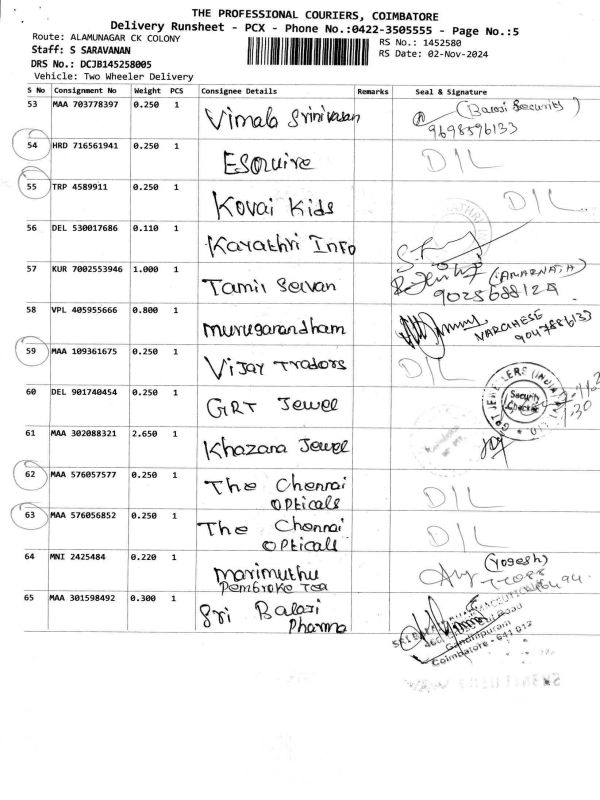 THE PROFESSIONAL COURIERS, COIMBATORE
Delivery Runsheet - PCX - Phone No.:0422-3505555 - Page No.:5
Route: ALAMUNAGAR CK COLONY RS No.: 1452580
Staff: S SARAVANAN RS Date: 02-Nov-2024
DRS No.: DCJB145258005
Vehicle: Two Wheeler Delivery
S No Consignment No Weight PCS Consignee Details Remarks Seal & Signature
53 MAA 703778397 0.250 1 Vimala Srinivasan (Balaji Security)
9698596133
54 HRD 716561941 0.250 1 Esquire D/L
55 TRP 4589911 0.250 1 Kovai Kids D/L
56 DEL 530017686 0.110 1 Kayathri Info
57 KUR 7002553946 1.000 1 Tamil Selvan (AMARNATH)
58 VPL 405955666 0.800 1 Muruganandham
9047886133
59 MAA 109361675 0.250 1 Vijay Tradors D/L
60 DEL 901740454 0.250 1 GRT Jewel
GRT JEWELLERS (INDIA) PVT LTD
Security
Checked
61 MAA 302088321 2.650 1 Khazana Jewel
62 MAA 576057577 0.250 1 The Chennai D/L
Opticals
63 MAA 576056852 0.250 1 The Chennai D/L
Opticals
64 MNI 2425484 0.220 1 Marimuthu (Yogesh)
Pembroke Tea
65 MAA 301598492 0.300 1 Sri Balaji
Pharma
Gandhipuram
Coimbatore - 641 012